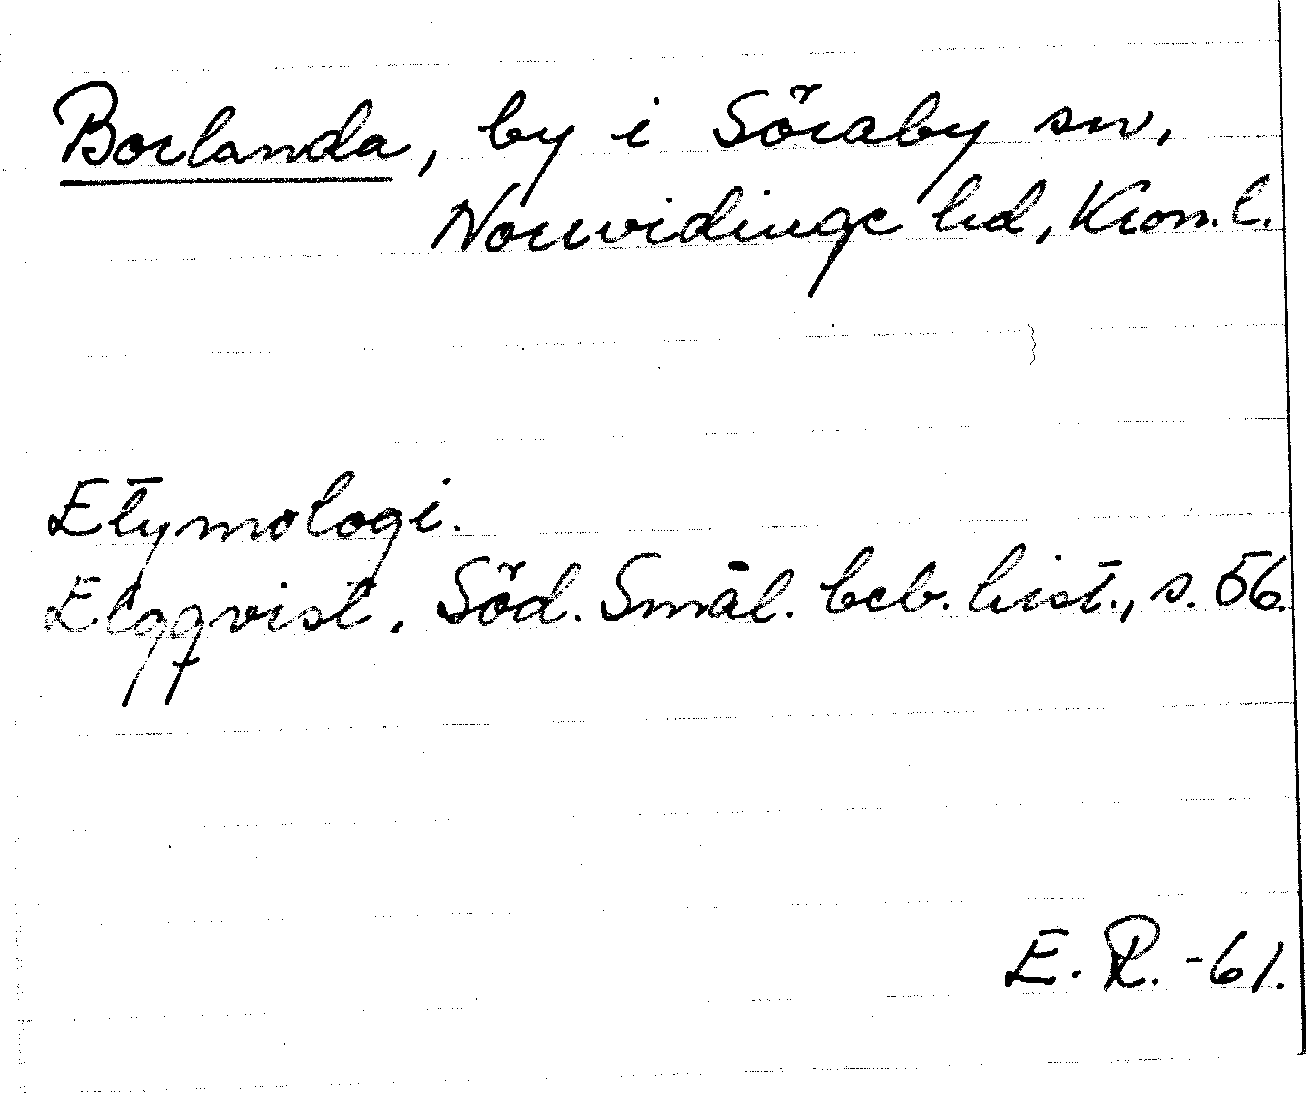 Borlanda, by i Söraby sn,
Norrvidinge hd, Kron. l.
Etymologi.
Elgqvist, Söd. Smål. beb. hist., s. 56.
E. R. -61.